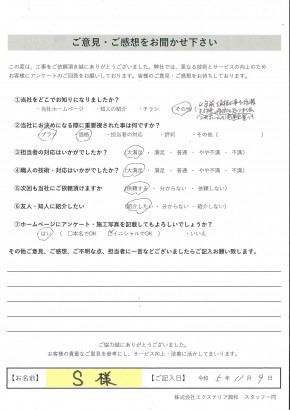 ご意見・ご感想をお聞かせ下さい
この度は、工事をご依頼頂き誠にありがとうございました。弊社では、更なる技術とサービスの向上のため
お客様にアンケートのご回答をお願いしております。皆様のご意見・ご感想をお待ちしております。
①当社をどこでお知りになりましたか？
・当社ホームページ ・知人の紹介 ・チラシ その他
②当社にお決めになる際に重要視された事は何ですか？
プラン 価格 ・担当者の対応 ・評判 ・その他（ ）
③担当者の対応はいかがでしたか？ 大満足 ・ 満足 ・ 普通 ・ やや不満 ・ 不満）
④職人の技術・対応はいかがでしたか？ 大満足 ・ 満足 ・ 普通 ・ やや不満 ・ 不満）
⑤次回も当社にご依頼頂けますか 依頼する ・ 分からない ・ 依頼しない）
⑥友人・知人に紹介したい 紹介したい ・ 分からない ・ 紹介しない）
⑦ホームページにアンケート・施工写真を記載してもよろしいでしょうか？
はい （ □本名でOK ☑イニシャルでOK ） ・いいえ
その他ご意見、ご感想、ご不明な点、担当者に一言などございましたらご記入お願い致します。
ご協力誠にありがとうございました。
お客様の貴重なご意見を参考にし、サービス向上・改善に活かしてまいります。
【お名前】 S 様 【ご記入日】 令和 5 年 11 月 9 日
株式会社エクステリア興和 スタッフ一同